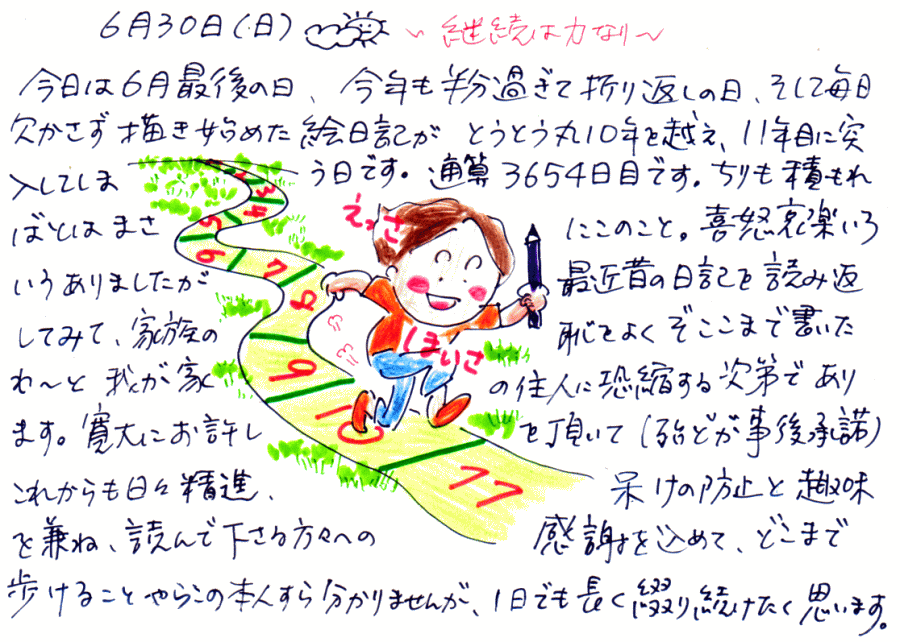 6月30日(日) ～継続は力なり～
今日は6月最後の日、今年も半分過ぎて折り返しの日、そして毎日
欠かさず描き始めた絵日記がとうとう丸10年を越え、11年目に突
入してしまう日です。通算3654日目です。ちりも積もれ
ばとはまさにこのこと。喜怒哀楽いろ
いうありましたが最近昔の日記を読み返
してみて、家族の恥をよくぞここまで書いた
わ〜と我が家の住人に恐縮する次第であり
ます。寛大にお許しを頂いて(殆どが事後承諾)
これからも日々精進、呆けの防止と趣味
を兼ね、読んで下さる方々への感謝を込めて、どこまで
歩けることやらこの本人すら分かりませんが、1日でも長く綴り続けたく思います。
えっさ
ほいさ
3
4
5
6
7
8
9
10
11